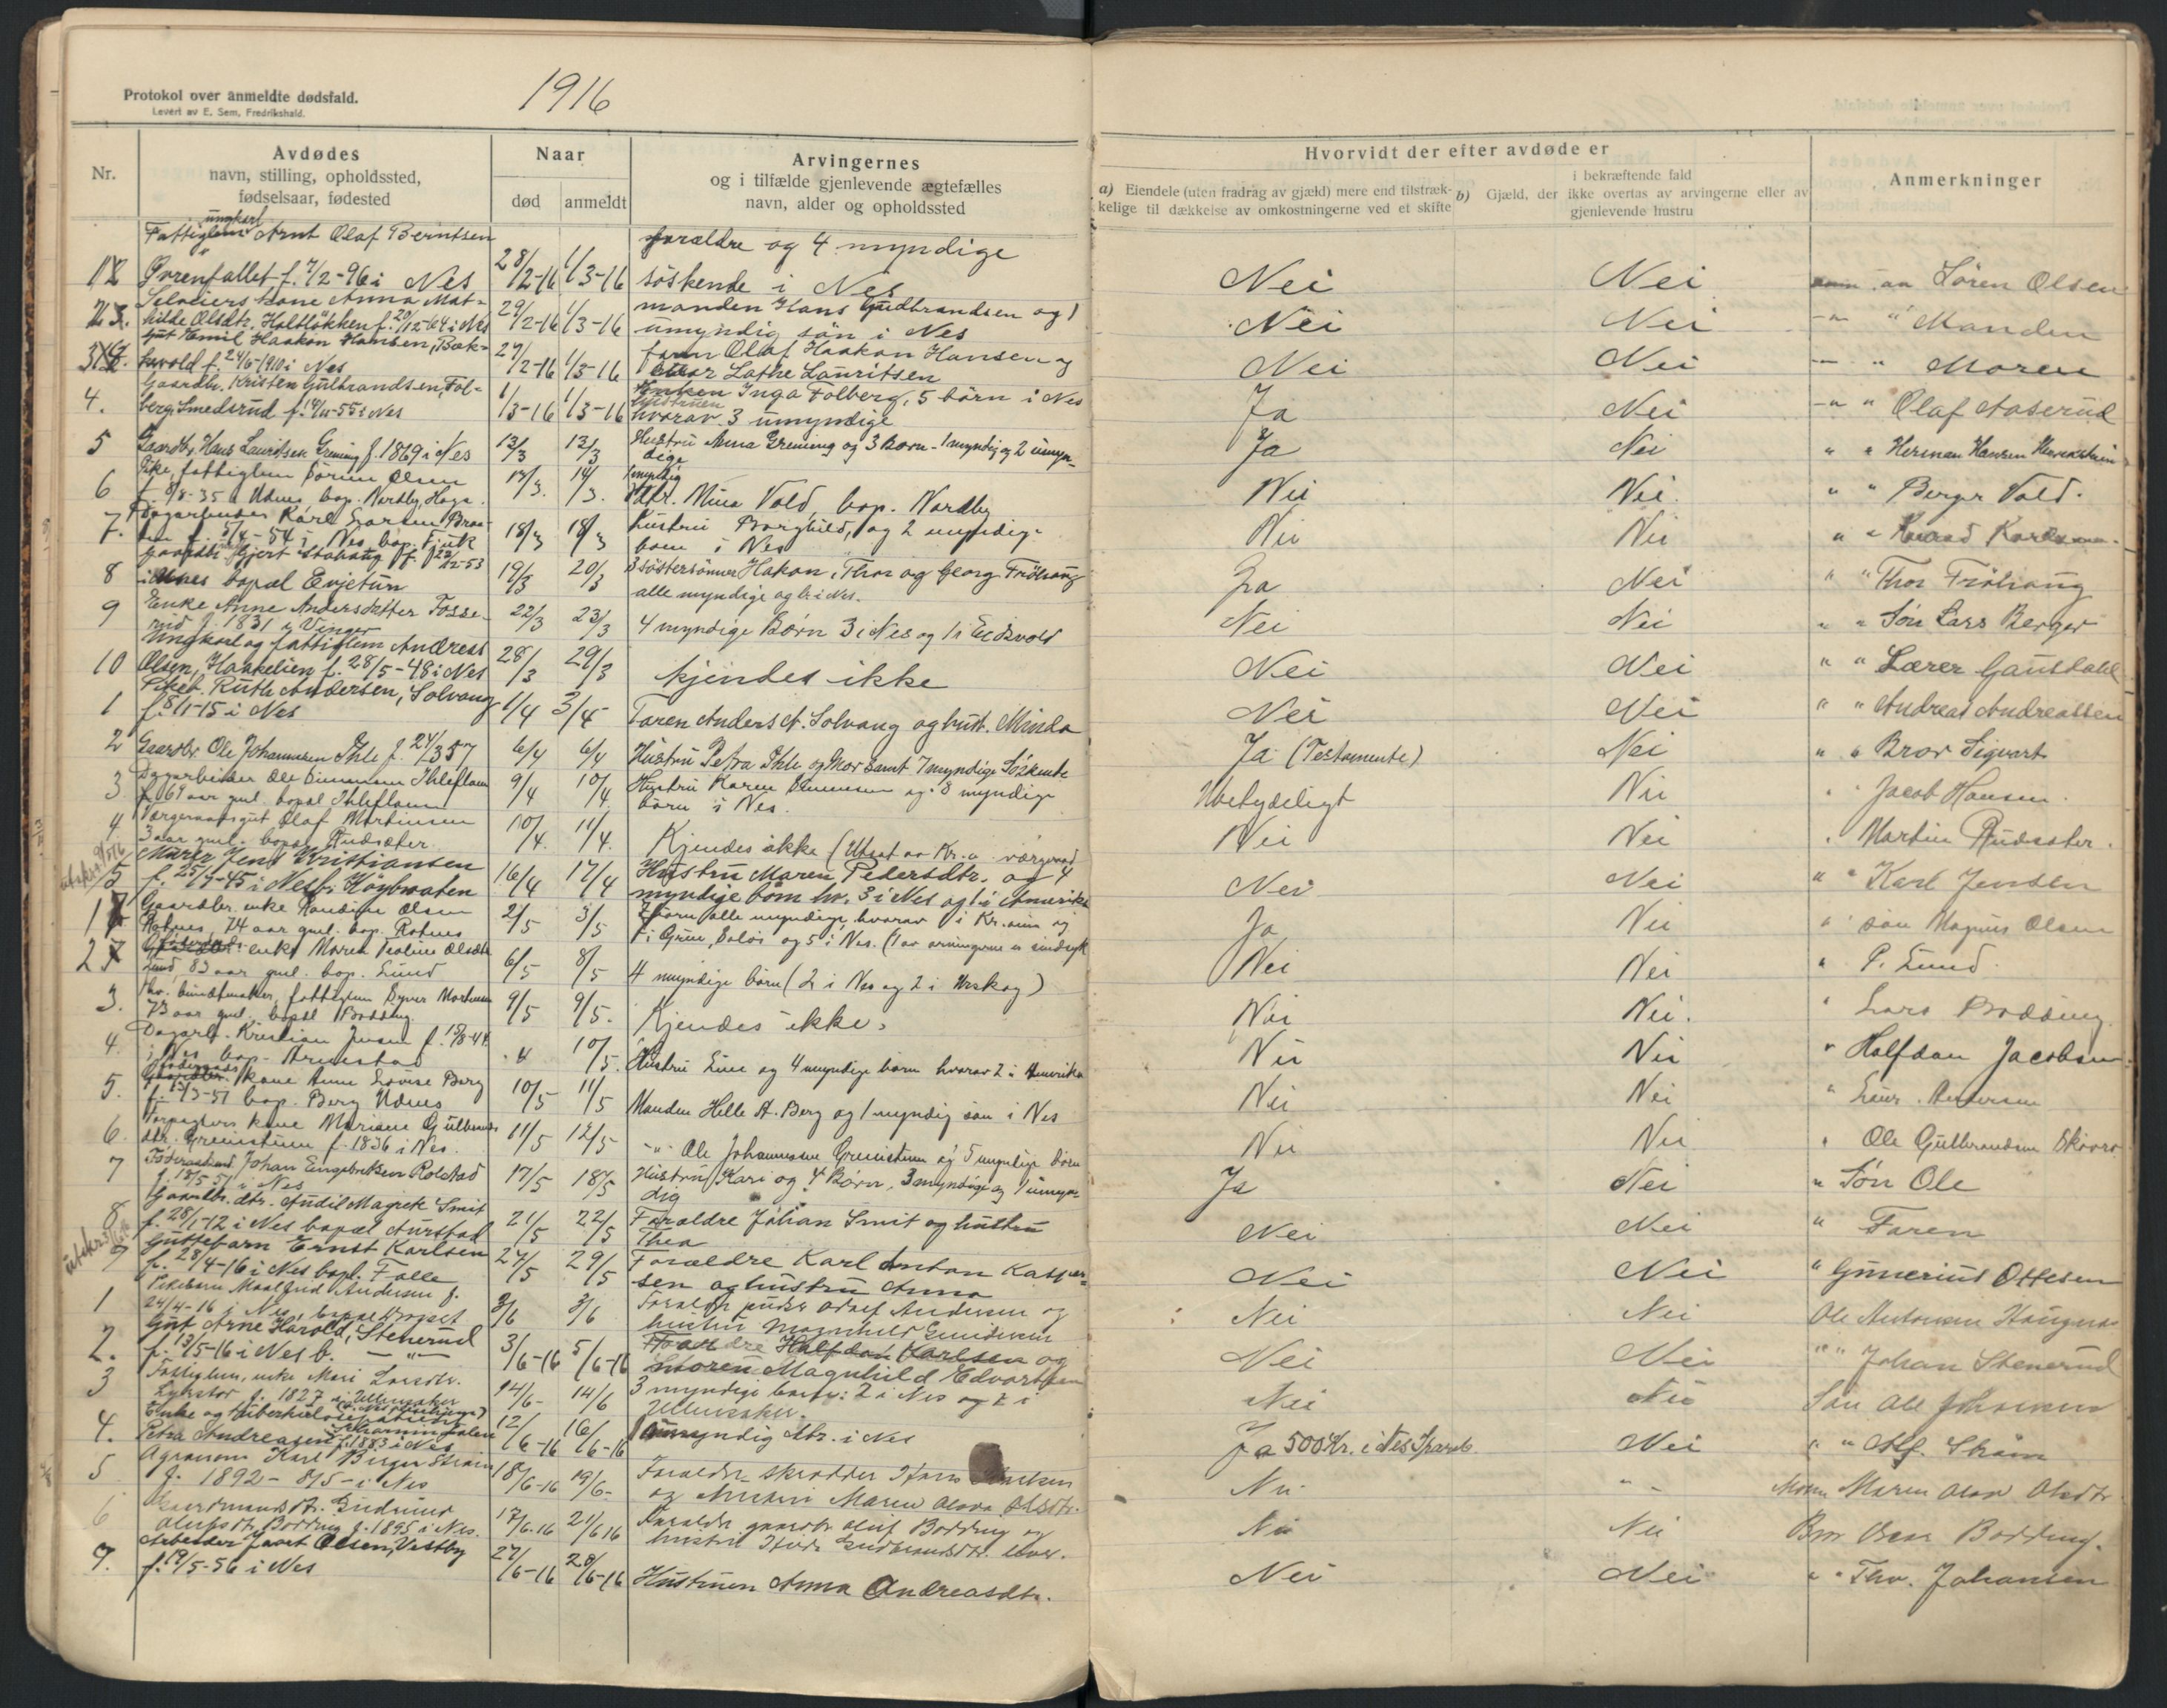 1916
Protokol over anmeldte dødsfald.
Levert av E. Sem, Fredrikshald.
Nr.
Avdødes
navn, stilling, opholdssted,
fødselsaar, fødested
Naar
død
anmeldt
Arvingernes
og i tilfælde gjenlevende ægtefælles
navn, alder og opholdssted
Hvorvidt der efter avdøde er
a) Eiendele (uten fradrag av gjæld) mere end tilstræk-
kelige til dækkelse av omkostningerne ved et skifte
b) Gjæld, der
i bekræftende fald
ikke overtas av arvingerne eller av
gjenlevende hustru
Anmerkninger
ungkarl
Fattiglem Arnt Olaf Berntsen
forældre og 4 myndige
f. 7/2-96 i Nes 28/2-16 1/3-16 söskende i Nes Nei Nei Søren Olsen
kone Anna Mat-
manden Hans Gudbrandsen og 1
hilde Olsdtr. f. 20/12-64 i Nes 29/2-16 1/3-16 umyndig sön i Nes Nei Nei " Manden
gut Emil Haakon Hansen, Bak-
faren Olaf Haakon Hansen og
kevold f. 24/6-1910 i Nes 27/2-16 1/3-16 Lathe Lauritsen Nei Nei " Moren
Gaardbr. Kristen Gulbrandsen, Fol-
Enken Inga Folberg, 5 börn i Nes
Hustruen
4. berg Smedsrud f. i Nes 1/3-16 1/3-16 hvorav 3 umyndige Ja Nei " " Olaf Aaserud
5 Gaardbr. Hans Lauritsen Grening f. 1869 i Nes 13/3 13/3 Hustru Anna Grening og 3 Børn - 1 myndig og 2 umyn-
dige Ja Nei " " Herman Hansen
Pike, fattiglem Olsen
myndig
6 f. 8/8-35 i Udnes, bop. Nordby, Haga. 14/3. dtr. Mina Vold, bop. Nordby Nei Nei. " " Berger Vold.
7. Dagarbeider Karl Larsen
f. 5/4-54 i Nes bop. Fjuk 18/3 18/3 hustru Borghild, og 2 myndige
börn i Nes Nei Nei " "
Gaardbr. Gjert f.
8 i Nes bopæl Evjetun 19/3 20/3 3 söstersönner Hakon, Thor og Georg Fröhaug
alle myndige og bor i Nes. Ja Nei " " Thor Fröhaug
9 Enke Anne Andersdatter Fosse-
rud f. 1831 i Vinger 22/3 23/3 4 myndige Børn 3 i Nes og 1 i Eidsvold Nei Nei " " Søn Lars Berger
Ungkarl og fattiglem Andreas
10 Olsen, Haakelien f. 28/5-48 i Nes 28/3 29/3 kjendes ikke Nei Nei " " Lærer Gausdahl
Pikeb. Ruth Andersen, Solvang
1 f. 8/1-15 i Nes 1/4 3/4 Faren Anders A. Solvang og hust. Minda Nei Nei " " Andreas Andreassen
2 Gaardbr. Ole Johannesen Ihle f. 24/3 57 6/4 6/4 Hustru Petra Ihle og Mor samt 7 myndige Søskende Ja (Testamente) Nei " " Bror Sigvart
3 Dagarbeider Ole Ihleflaen
f. 69 aar gml. bopæl Ihleflaen 9/4 10/4 Hustru Karen og 3 myndige
börn i Nes. Ubetydeligt Nei " Jacob Hansen.
4. Værgeraadsgut Olaf Martinsen
3 aar gml. bopæl Rudsæter. 10/4. 11/4. Kjendes ikke (Utsat av Kr.a værgeraad Nei Nei " Martin Rudsæter.
Murer Jens Kristiansen
5 f. 25/9-45 i Nes b. Høybraaten 16/4 17/4 Hustru Maren Pedersdtr. og 4
myndige børn hv. 3 i Nes og 1 i Amerika Nei Nei " " Karl Jensen
1 Gaardbr. enke Olsen
Rotnes, 74 aar gml. bop. Rotnes 2/5 3/5 7 börn alle myndige, hvorav 1 i Kr.ania og
1 i Grue, Solör og 5 i Nes. (1 av arvingerne er sindssyk Ja Nei " sön Magnus Olsen
2 enke Maren Olsdtr
Lund, 83 aar gml. bop. Lund 6/5 8/5 4 myndige börn (2 i Nes og 2 i Urskog) Nei Nei " P. Lund.
3. fattiglem Syver Mortensen
73 aar gml., bopæl Bodding. 9/5 9/5. Kjendes ikke. Nei Nei. " Lars Bodding.
4. Dagarb. Kristian Jensen f. 15/8-44
i Nes bop. Arnestad " 10/5. Hustru Line og 4 myndige börn hvorav 2 i Amerika Nei Nei " Halfdan Jacobsen.
5. kone Anne Lovise Berg
f. bop. Berg Udnes 10/5 11/5 Manden Helle A. Berg og 1 myndig sön i Nes Nei Nei " Laur. Andersen
6. kone Mariane Gulbrands
dtr. f. 1836 i Nes. 11/5 12/5 -"- Ole Johannesen og 5 myndige börn Nei Nei " Ole Gulbrandsen
7 Föderaadsmand Johan Engebretsen Rolstad
f. 18/5 51 i Nes 17/5 18/5 Hustru Kari og 4 Børn, 3 myndige og 1 umyn-
dig Ja Nei " Søn Ole
Gaardbr. dtr. Audil Magrete Smit
8 f. 28/1-12 i Nes bopæl Aurstad 21/5 22/5 Foræeldre Johan Smit og hustru
Thea Nei Nei " Faren
Guttebarn Ernst Karlsen
f. 28/4-16 i Nes bopl. Falle 27/5 29/5 Forældre Karl Anton Kasper-
sen og hustru Anna Nei Nei " Gunerius Ottesen
1 Pikebarn Maalfrid Andersen f.
24/4-16 i Nes, bopæl 3/6 3/6 Forældre Adolf Andersen og
hustru Magnhild Nei Nei Ole Antonsen
Gut Arne Harold, Stenerud
2. f. 13/5-16 i Nes b. -"- 3/6-16 5/6-16 Forældre Halfdan Karlsen og
Moren Magnhild Edvardsen Nei Nei " " Johan Stenerud
3 Fattiglem, enke Mari Larsdtr.
f. 1827 i Ullensaker 14/6- 14/6 3 myndige börn: 2 i Nes og 1 i
Ullensaker. Nei Nei Sön Ole Johansen
4. Enke og tuberkulosepatient
Petra Andreasen f. 1883 i Nes 12/6-16 16/6-16 umyndig dtr. i Nes Ja 500 Kr. i Nes Spareb. Nei " " Alf.
5 Agronom Karl Birger
f. 1892-8/5- i Nes 18/6-16 19/6- Forældre skrædder
og hustru Maren Olava Olsdtr. Nei " Maren Olava Olsdtr.
6 Gaardmandsdtr. Gudrun
Olufsdtr. Bodding f. 1895 i Nes. 17/6.16 21/6 16 Forældre gaardbr. Oluf Bodding og
hustru Gudbrandsdtr. lever. Nei Nei Bror Bodding.
Arbeider Olsen, Vestby
7. f. 19/5-56 i Nes 27/6-16 28/6-16 Hustruen Anna Andreasdtr. Nei Nei " " Thv. Johansen